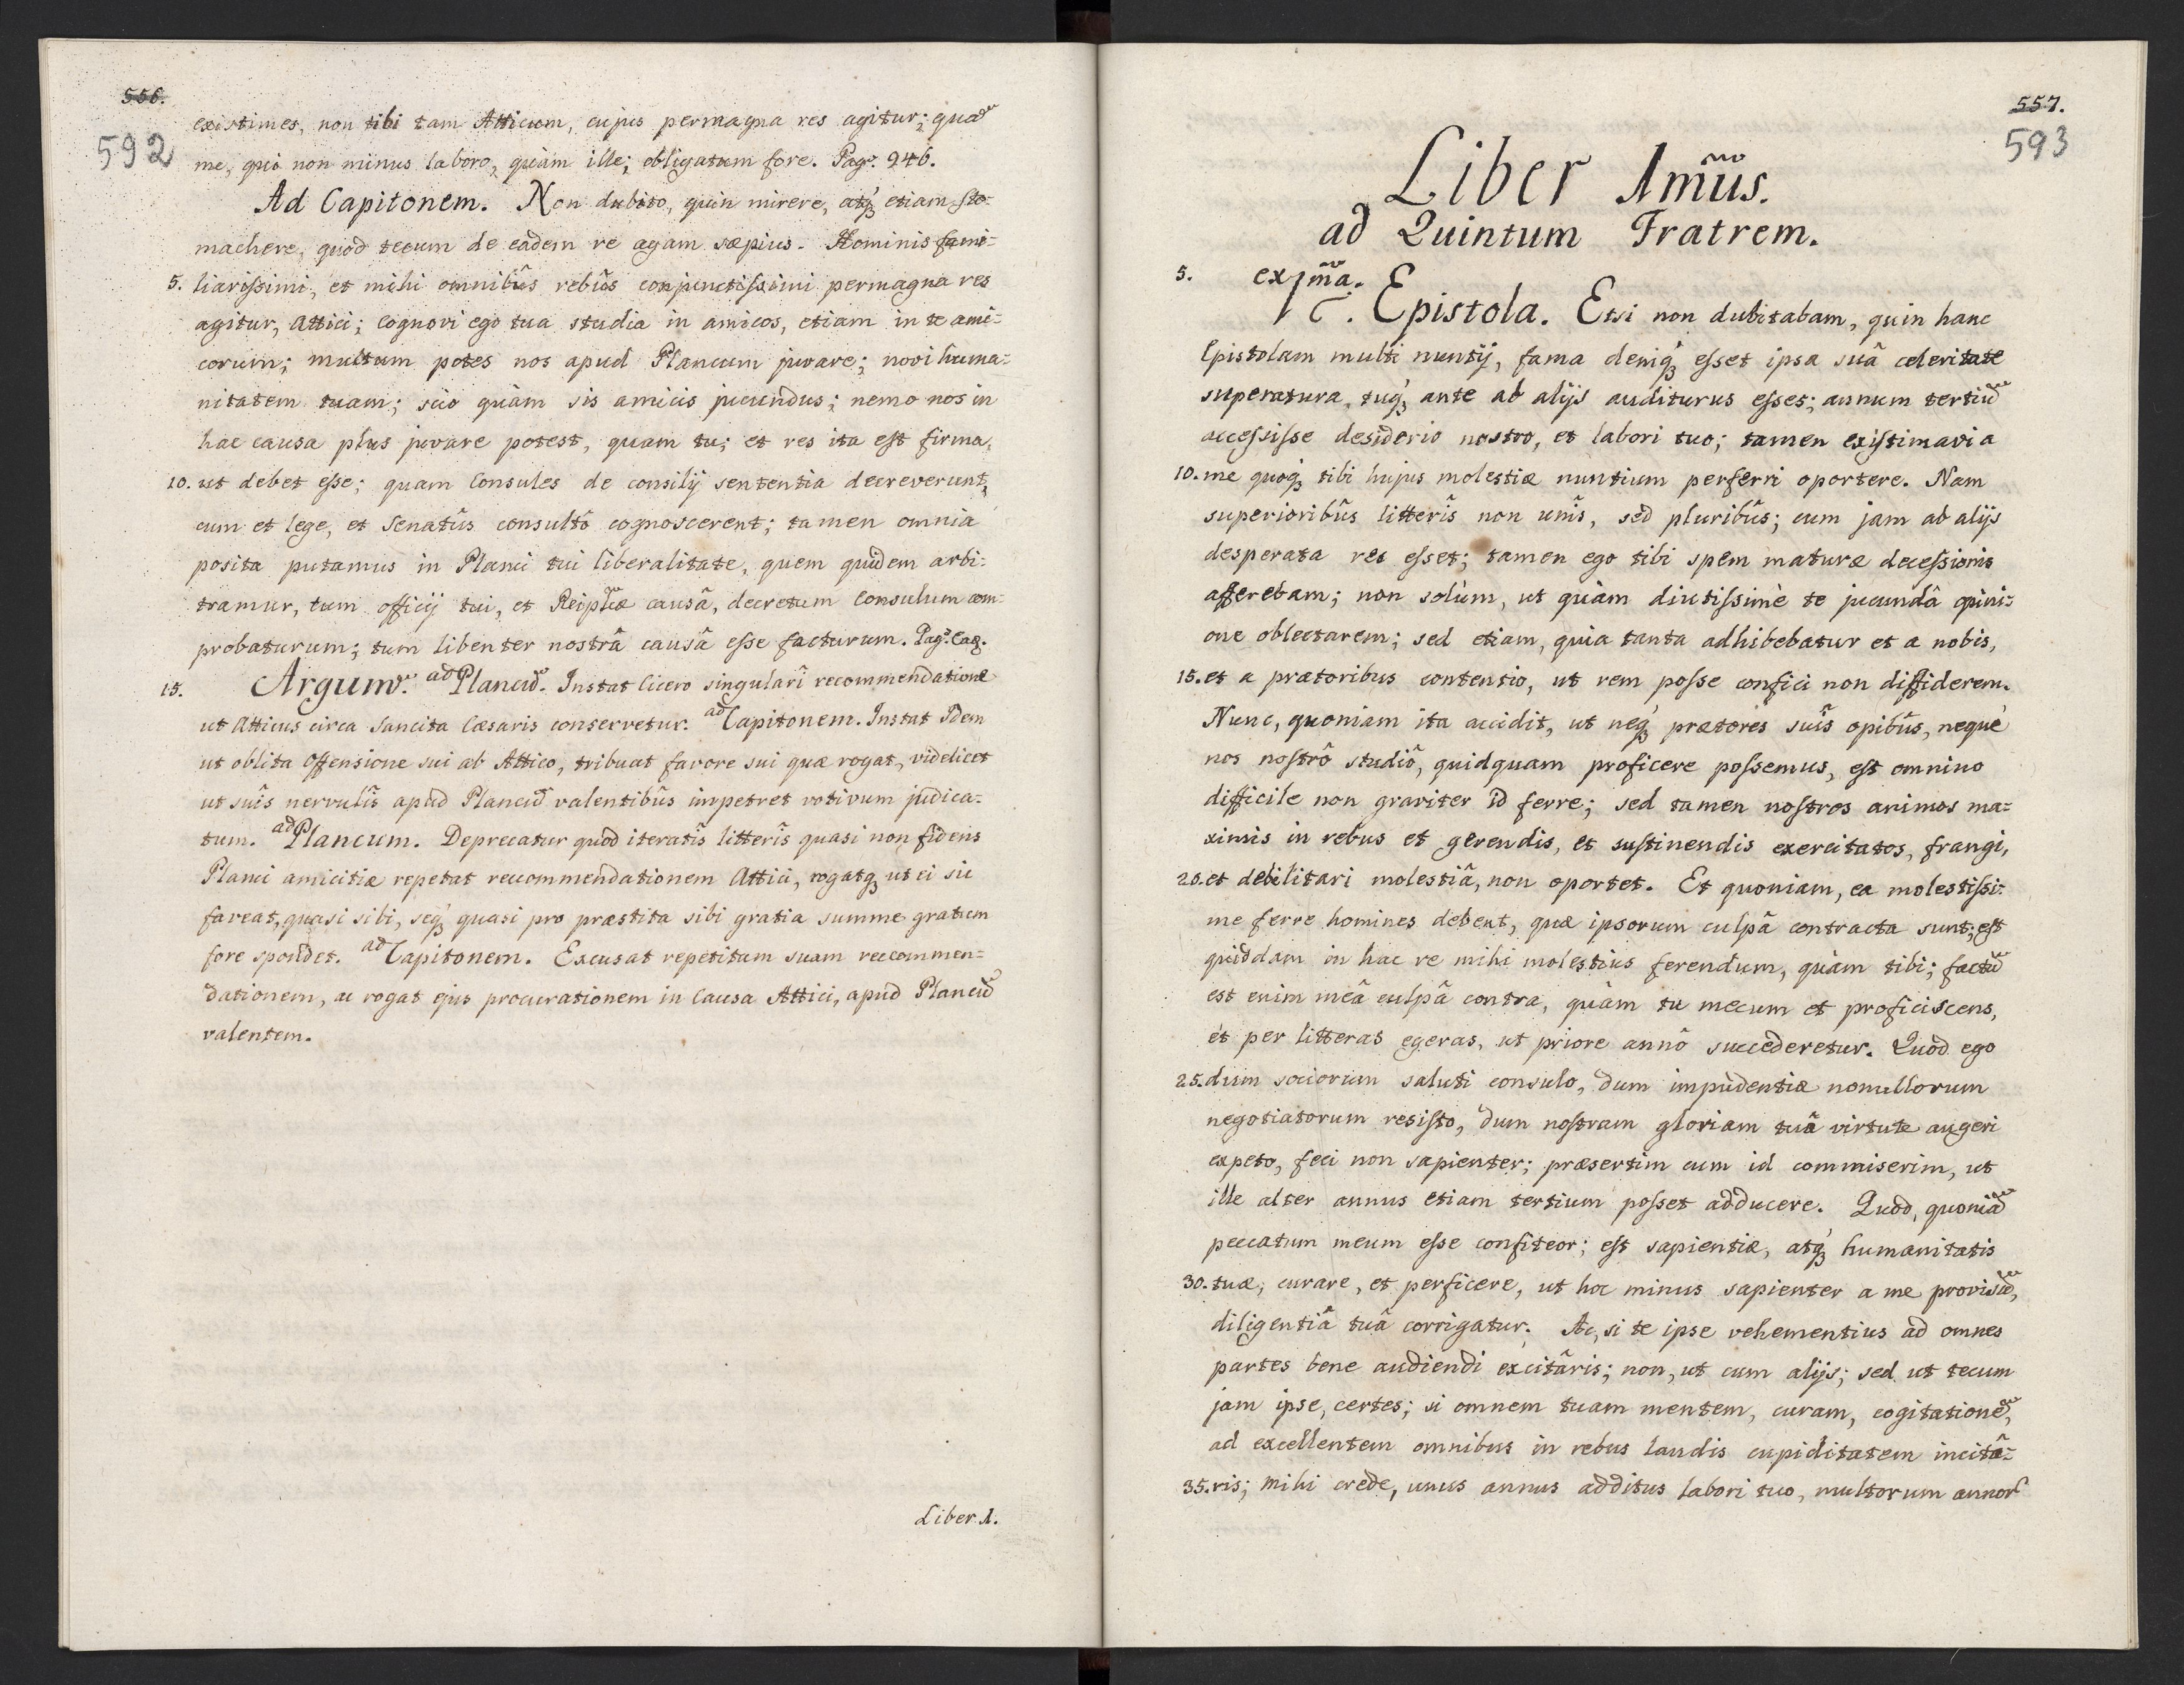 556.
592
existimes, non tibi tam Atticum, cujus permagna res agitur; quã
me, qui non minus laboro, quàm ille; obligatum fore. Pag. 246.
Ad Capitonem. Non dubito, quin mirere, atq́ꝫ etiam sto-
machere, quod tecum de eadem re agam sæpius. Hominis fami-
5. liarissimi, et mihi omnibûs rebûs conjunctissimi permagna res
agitur, Attici; Cognovi ego tua studia in amicos, etiam in te ami-
corum; multum potes nos apud Plancum juvare; novi huma-
nitatem tuam; scio quàm sis amicis jucundus; nemo nos in
hac causa plus juvare potest, quam tu; et res ita est firma,
10. ut debet esse; quam Consules de consilij sententia decreverunt,
cum et lege, et Senatûs consultô cognoscerent; tamen omnia
posita putamus in Planci tui liberalitate, quem quidem arbi-
tramur, tum officij tui, et Reiplicæ causâ, decretum Consulum com-
probaturum; tum libenter nostrâ causâ esse facturum. Pag. Eaḍ.
15. Argumᵗ. ad Plancũ. Instat Cicero singulari recommendatione
ut Atticus circa Sancita Cæsaris conservetur. ad Capitonem. Instat Idem
ut oblita offensione sui ab Attico, tribuat favore sui quæ rogat, videlicet
ut suîs nervulîs apud Plancũ valentibûs impetret votivum judica-
tum. ad Plancum. Deprecatur quod iteratîs litterîs quasi non fidens
Planci amicitiæ repetat recommendationem Attici, rogatqꝫ ut ei sic
faveat, quasi sibi, seq́ꝫ quasi pro præstita sibi gratia summe gratum
fore spondet. ad Capitonem. Excusat repetitam suam reccommen-
dationem, ac rogat ejus procurationem in Causa Attici, apud Plancũ
valentem.
Liber 1.
557.
593
Liber 1mûs.
ad Quintum Fratrem.
5. ex 1mâ.
C. Epistola. Etsi non dubitabam, quin hanc
Epistolam multi nuntij, fama deniq́ꝫ esset ipsa suâ celeritate
superatura, tuq́ꝫ ante ab alijs auditurus esses; annum tertiũ
accessisse desiderio nostro, et labori tuo; tamen existimavi a
10. me quoq́ꝫ tibi hujus molestiæ nuntium perferri oportere. Nam
superioribûs litterîs non unîs, sed pluribûs; cum jam ab alijs
desperata res esset; tamen ego tibi spem maturæ decessionis
afferebam; non solùm, ut quàm diutissimè te jucundâ opini-
one oblectarem; sed etiam, quia tanta adhibebatur et a nobis,
15. et a prætoribus contentio, ut rem posse confici non diffiderem.
Nunc, quoniam ita accidit, ut neq́ꝫ prætores suîs opibûs, nequè
nos nostrô studiô, quidquam proficere possemus, est omnino
difficile non graviter id ferre; sed tamen nostros animos ma-
ximis in rebus et gerendis, et sustinendis exercitatos, frangi,
20. et debilitari molestiâ, non oportet. Et quoniam, ea molestissi-
me ferre homines debent, quæ ipsorum culpâ contracta sunt; est
quiddam in hac re mihi molestius ferendum, quàm tibi; factũ
est enim meâ culpâ contra, quàm tu mecum et proficiscens,
et per litteras egeras, ut priore annô succederetur. Quod ego
25. dum sociorum saluti consulo, dum impudentiæ nonullorum
negotiatorum resisto, dum nostram gloriam tuâ virtute augeri
expeto, feci non sapienter; præsertim cum id commiserim, ut
ille alter annus etiam tertium posset adducere. Quod, quoniã
peccatum meum esse confiteor; est sapientiæ, atq́ꝫ humanitatis
30. tuæ, curare, et perficere, ut hoc minus sapienter a me provisũ,
diligentiâ tuâ corrigatur. Ac, si te ipse vehementius ad omnes
partes bene audiendi excitâris; non, ut cum alijs; sed ut tecum
jam ipse, certes; si omnem tuam mentem, curam, cogitationẽ,
ad excellentem omnibus in rebus laudis cupiditatem incitâ-
35. ris; mihi crede, unus annus additus labori tuo, multorum annor